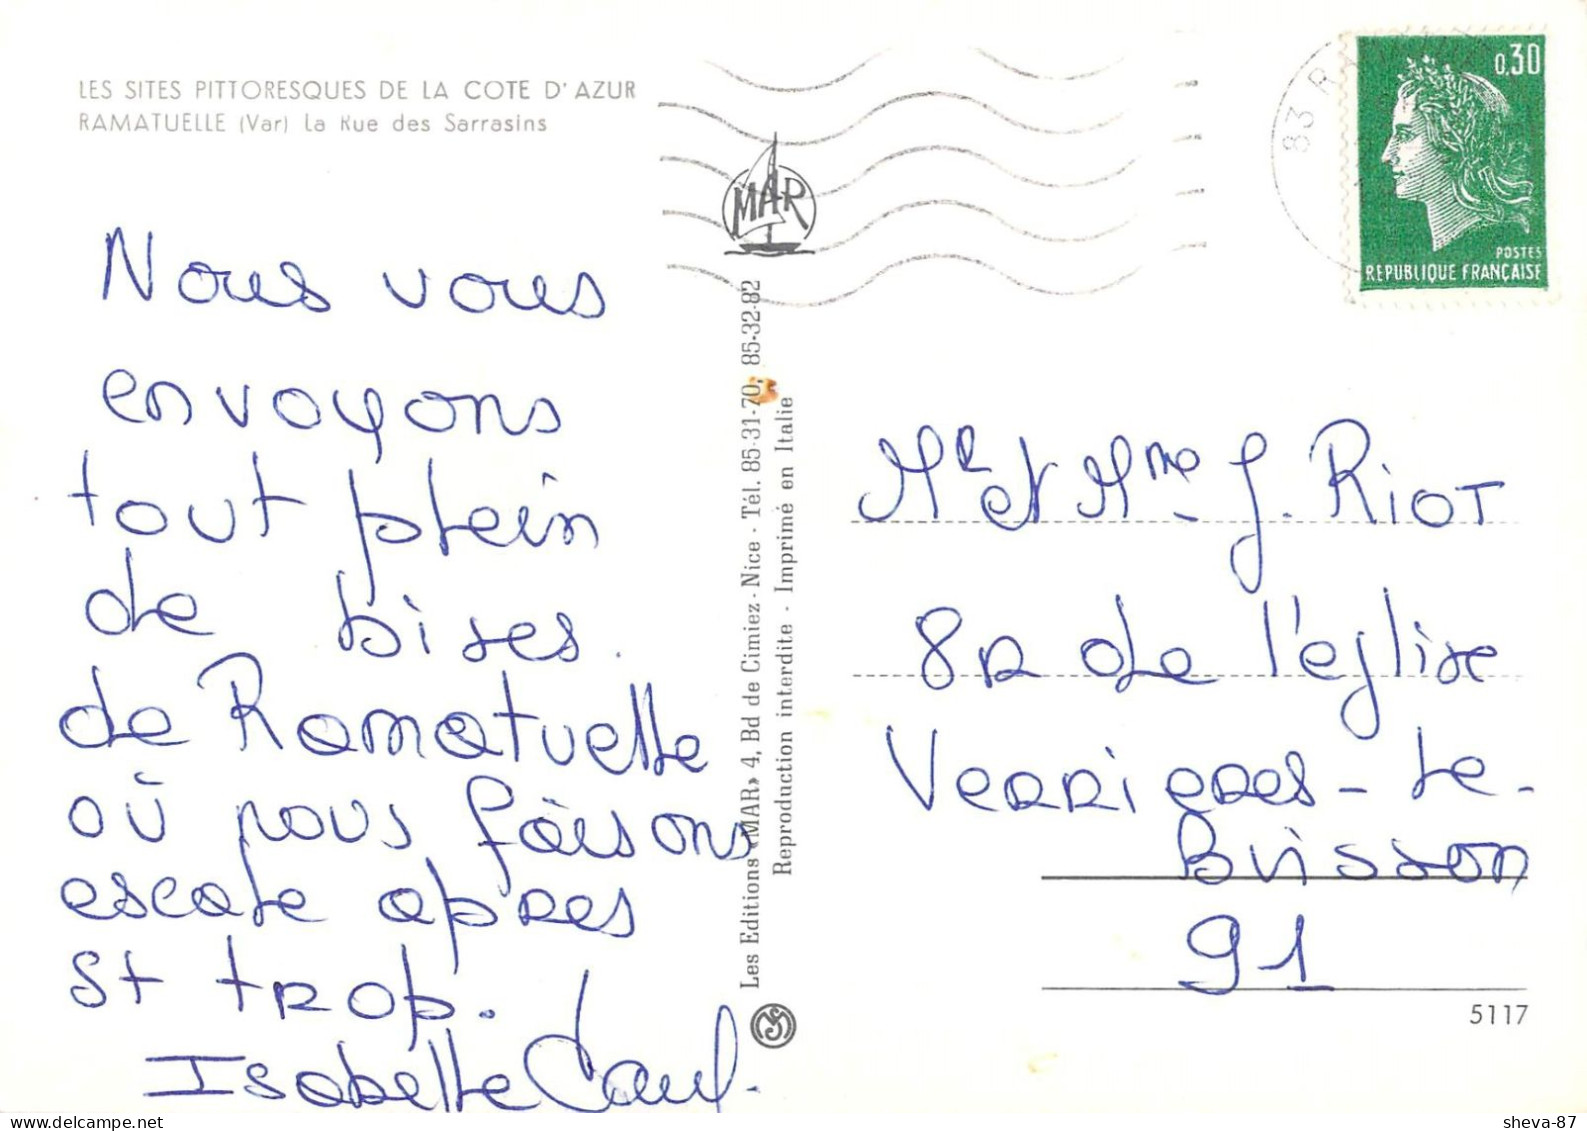 LES SITES PITTORESQUES DE LA COTE D'AZUR
RAMATUELLE (Var) La Rue des Sarrasins
Nous vous
envoyons
tout plein
de bises.
de Ramatuelle
où nous faisons
escale apres
St trop.
Isabelle
MAR
Les Editions «MAR» 4, Bd de Cimiez - Nice - Tél. 85-31-70, 85-32-82
Reproduction interdite - Imprimé en Italie
83 RA
0,30
POSTES
REPUBLIQUE FRANÇAISE
Mr et Mme J. RIOT
8 R de l'eglise
Verrieres-le-
Buisson
91
5117
sheva-87